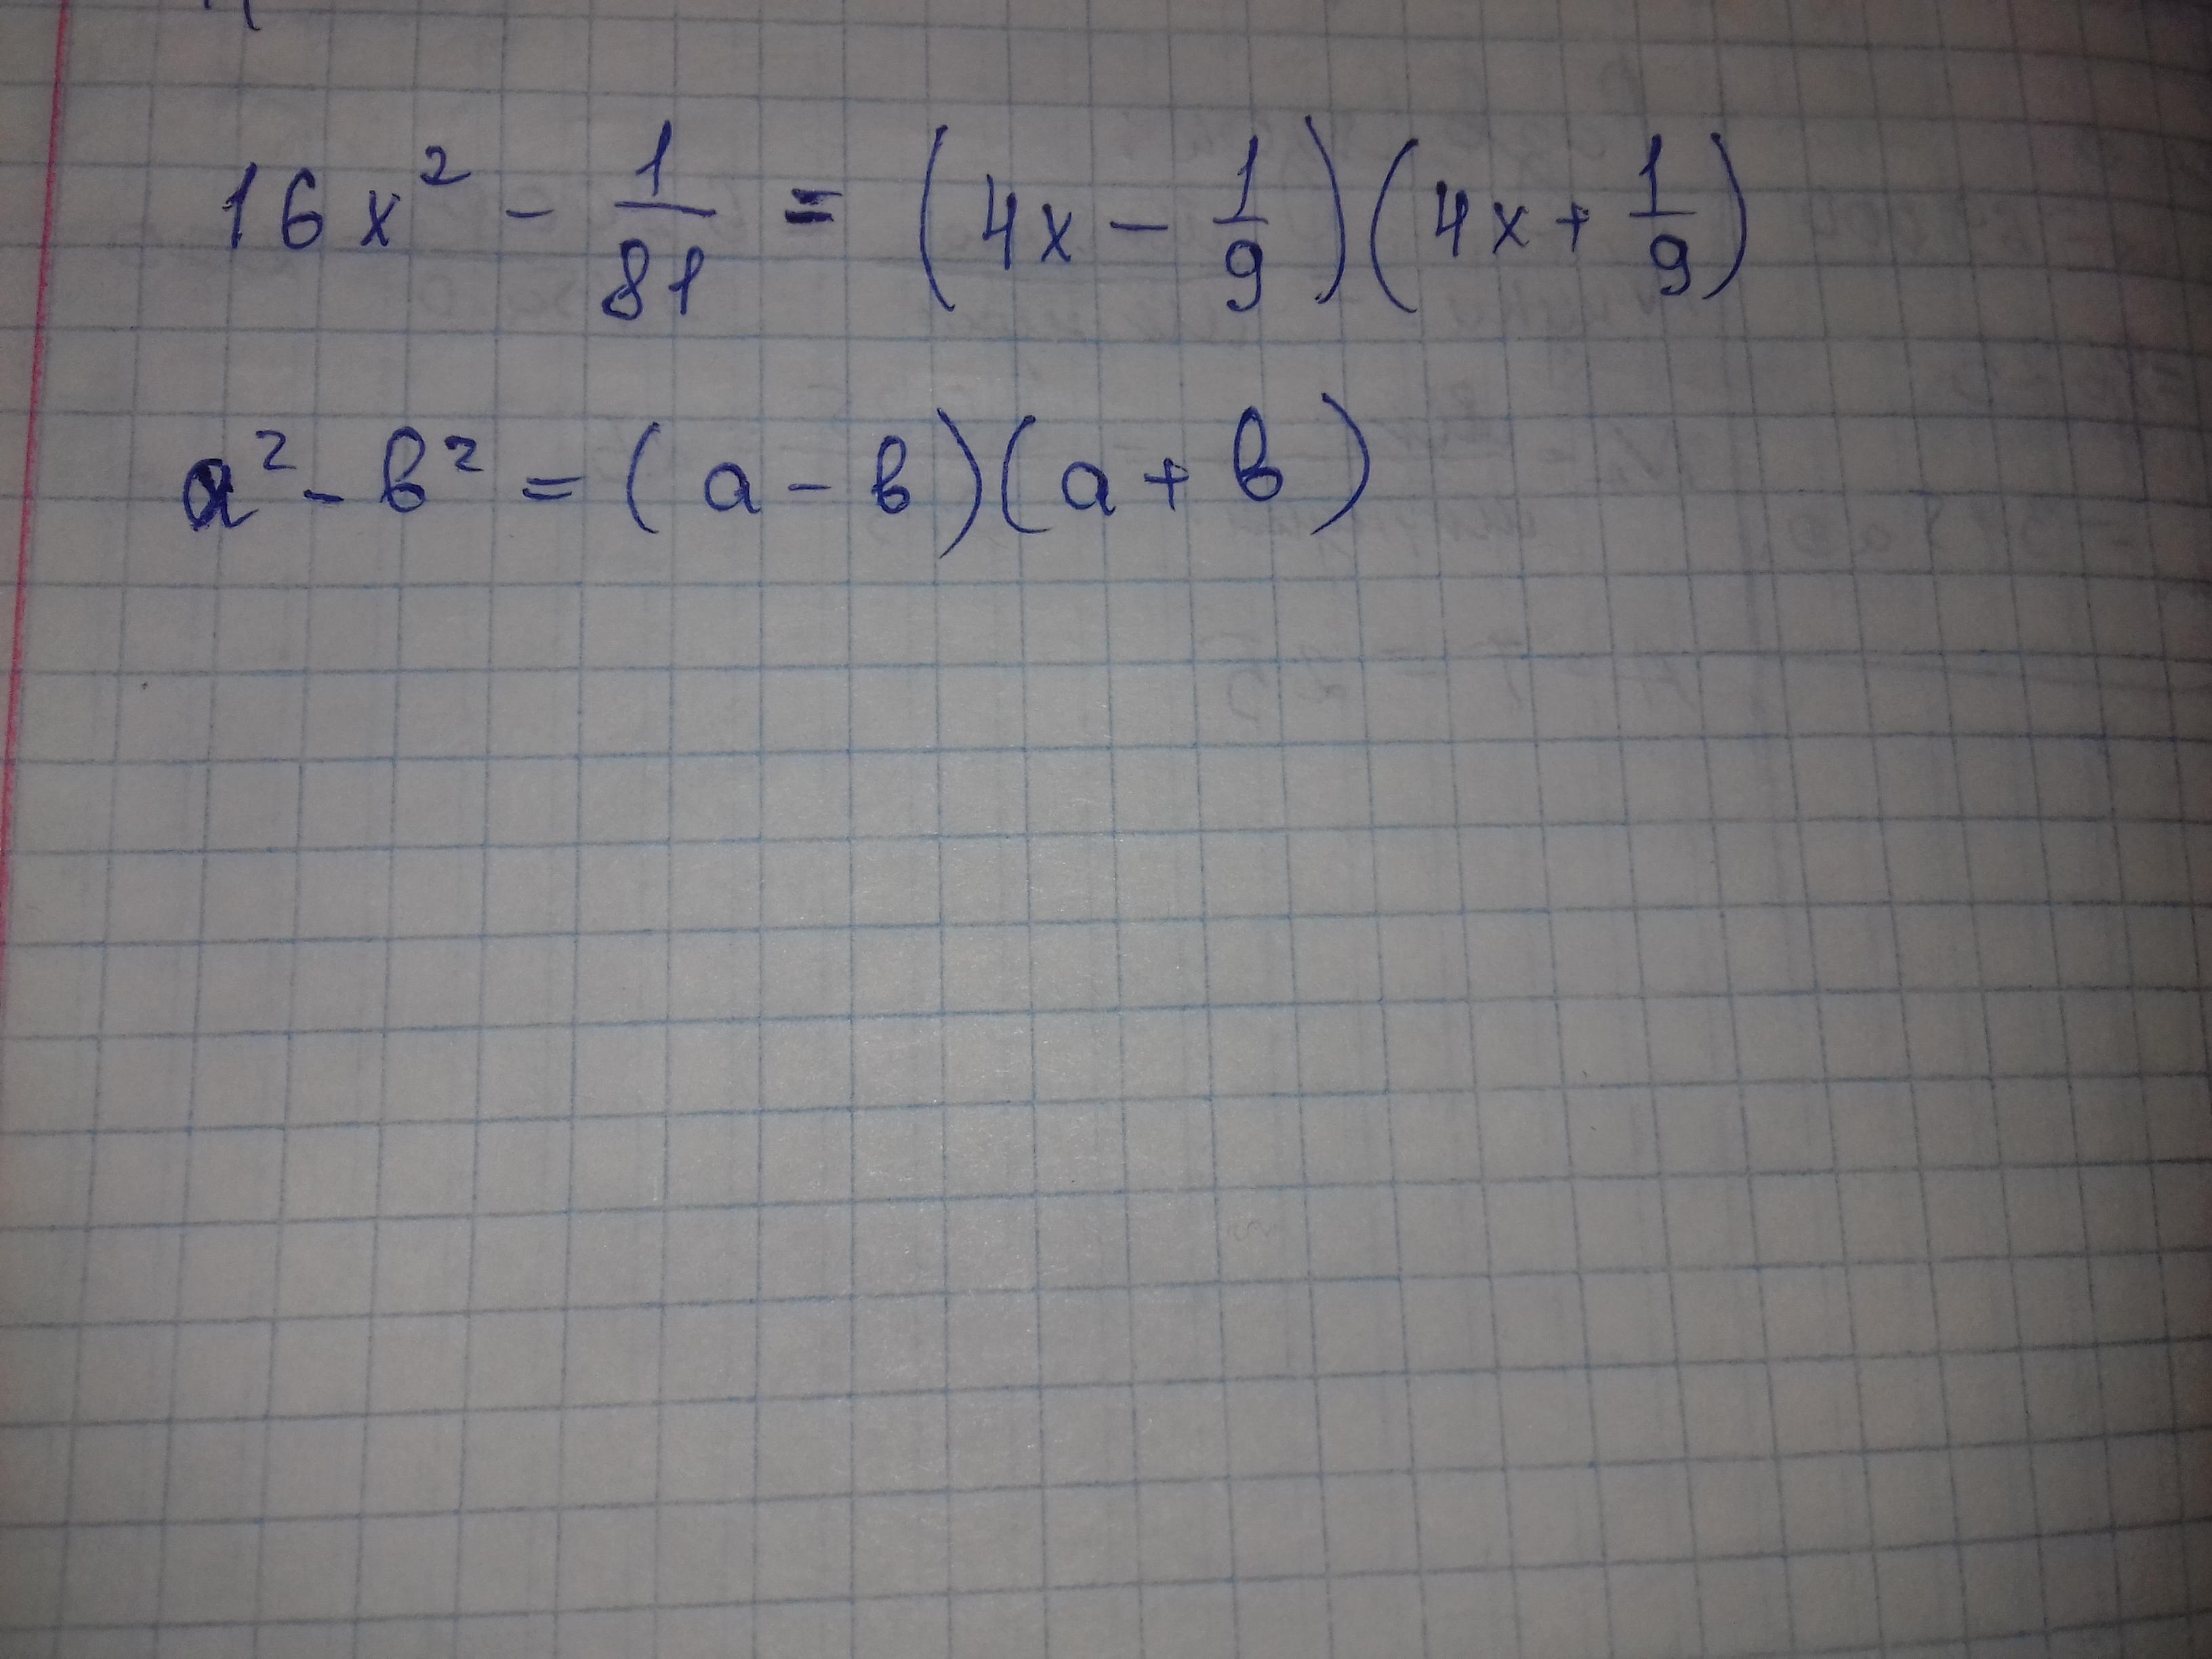 16x² - 1/81 = (4x - 1/9)(4x + 1/9)
a² - в² = (a - в)(a + в)